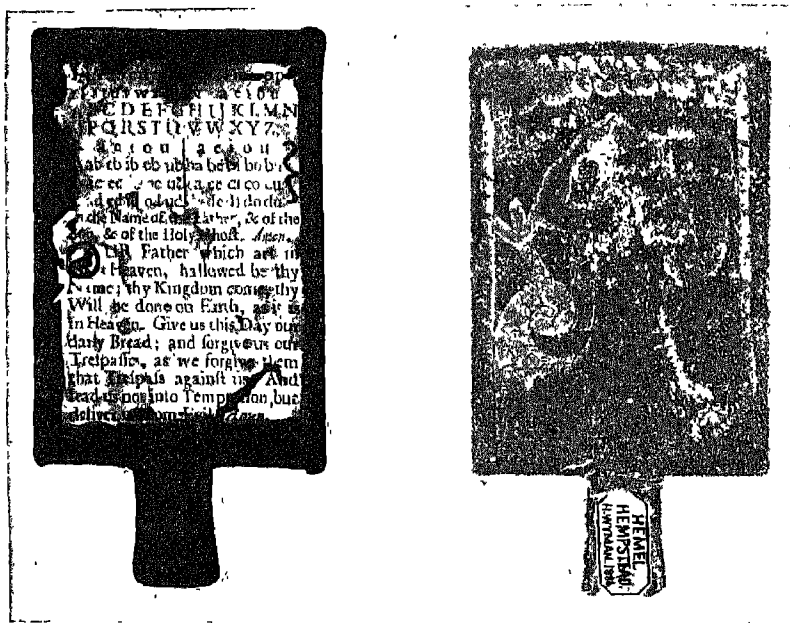 C D E F G H I J K L M N
P Q R S T U V W X Y Z
a e i o u | a e i o u
ab eb ib ob ub ba be bi bo bu
in the Name of the Father, & of the
& of the Holy Ghoſt. Amen.
Father which art in
Heaven, hallowed be thy
Name; thy Kingdom come, thy
Will be done on Earth, as it is
in Heaven. Give us this Day our
daily Bread; and forgive us our
Treſpaſſes, as we forgive them
that Treſpaſs againſt us: And
lead us not into Temptation, but
deliver us from Evil. Amen.
HEMEL
HEMPSTEAD.
H. WYMAN.